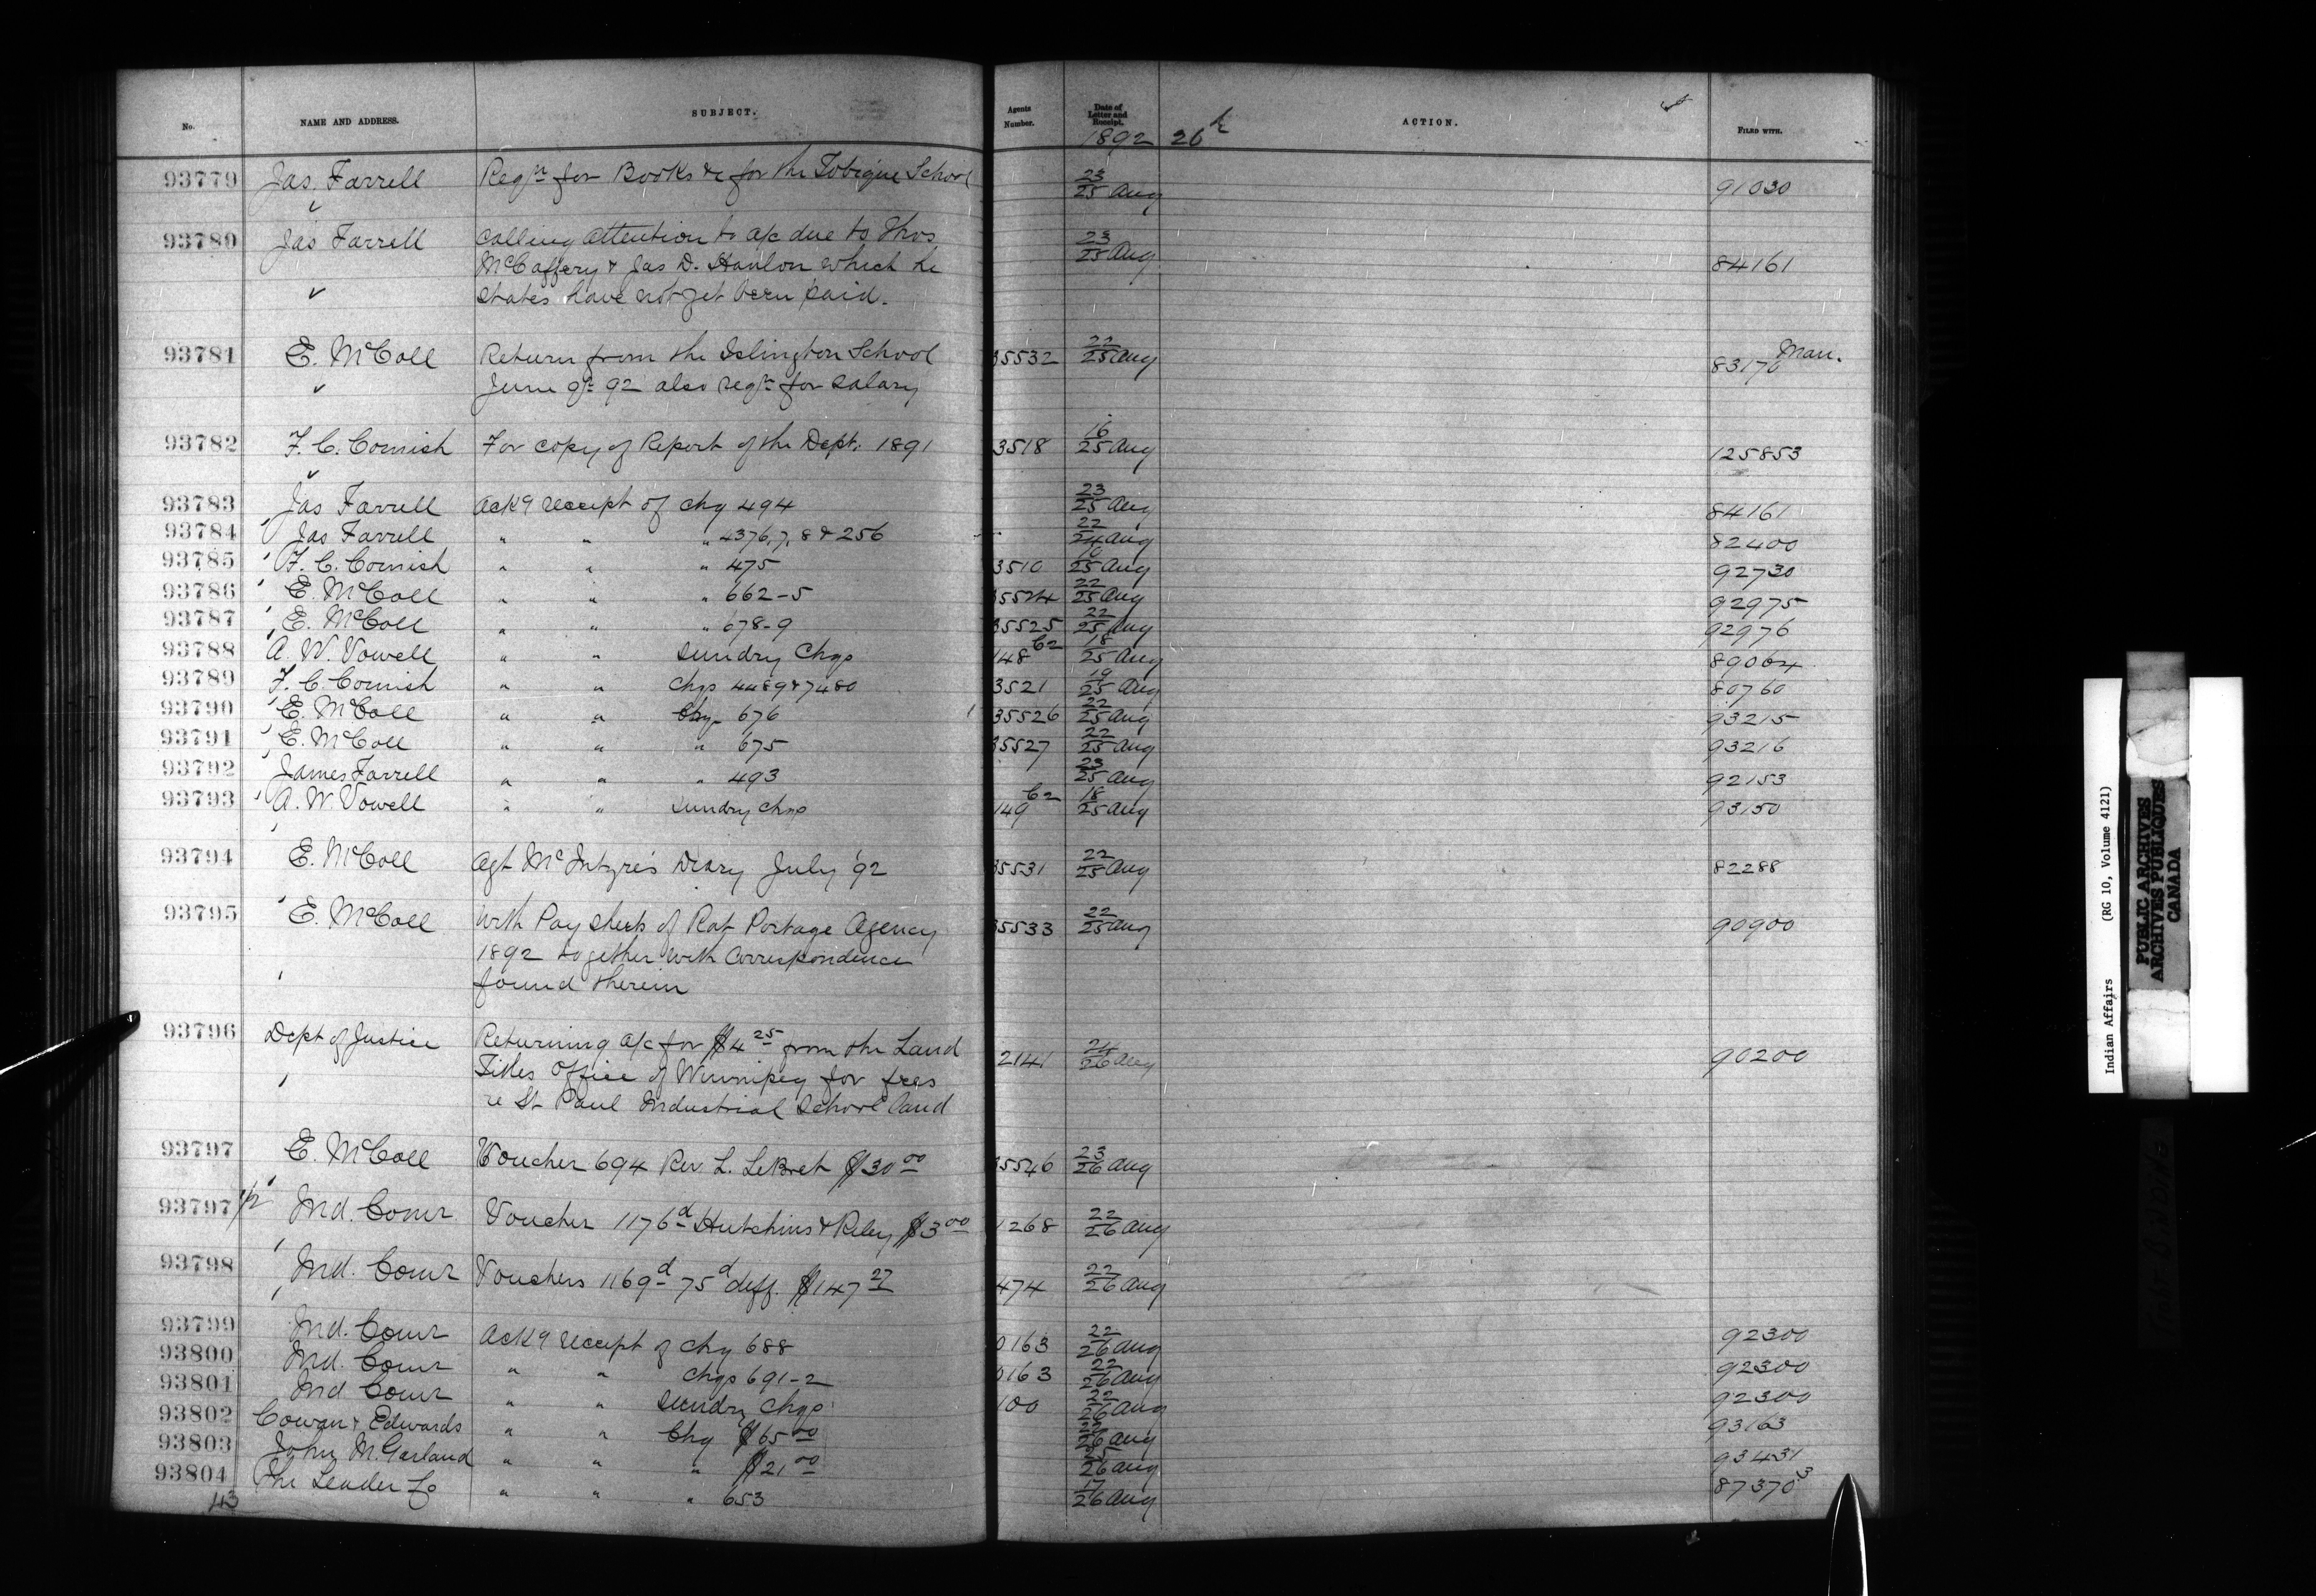 No. NAME AND ADDRESS. SUBJECT. Agents Number. Date of Letter and Receipt. ACTION. FILED WITH.
1892 26
93779 Jas. Farrell Reqn for Books &c for the Tobique School 23/25 Aug 91030
93780 Jas Farrell Calling attention to a/c due to Thos 23/25 Aug
McCaffery & Jas D. Hanlon which he 84161
states have not yet been paid.
93781 E. McColl Return from the Islington School 35532 22/25 Aug 83170 Man.
June qr 92 also reqn for salary
93782 F. C. Cornish For copy of Report of the Dept. 1891 3518 16/25 Aug 125853
93783 Jas Farrell Ackg receipt of chq 494 23/25 Aug 84161
93784 Jas Farrell " " " 4376,7,8 & 256 22/24 Aug 82400
93785 F. C. Cornish " " " 475 3510 25 Aug 92730
93786 E. McColl " " " 662-5 35524 22/25 Aug 92975
93787 E. McColl " " " 678-9 35525 22/25 Aug 92976
93788 A. W. Vowell " " sundry Chqs 148 C2 18/25 Aug 89064
93789 F. C. Cornish " " Chqs 4489 & 7480 3521 19/25 Aug 80760
93790 E. McColl " " Chq 676 35526 22/25 Aug 93215
93791 E. McColl " " " 675 35527 22/25 Aug 93216
93792 James Farrell " " " 493 23/25 Aug 92153
93793 A. W. Vowell " " sundry chqs 149 C2 18/25 Aug 93150
93794 E. McColl Agt McIntyre's Diary July '92 35531 22/25 Aug 82288
93795 E. McColl With Pay sheets of Rat Portage Agency 35533 22/25 Aug 90900
1892 together with Correspondence
found therein
93796 Dept of Justice Returning a/c for $4 25 from the Land 2141 24/26 Aug 90200
Titles Office of Winnipeg for fees
re St Paul Industrial School land
93797 E. McColl Voucher 694 Rev L. LeBret $30 00 35546 23/26 Aug
93797 1/2 Ind. Comr Voucher 1176 d Hutchins & Riley $3 00 1268 22/26 Aug
93798 Ind. Comr Vouchers 1169 d 75 d diff. $147 27 474 22/26 Aug
93799 Ind. Comr Ackg receipt of chq 688 0163 22/26 Aug 92300
93800 Ind. Comr " " chqs 691-2 0163 22/26 Aug 92300
93801 Ind Comr " " sundry chqs 100 22/26 Aug 92300
93802 Cowan & Edwards " " Chq $65 00 26 Aug 93163
93803 John M. Garland " " " $21 00 25/26 Aug 93431
93804 The Leader Co " " " 653 17/26 Aug 87370 3
43
Indian Affairs (RG 10, Volume 4121)
PUBLIC ARCHIVES
ARCHIVES PUBLIQUES
CANADA